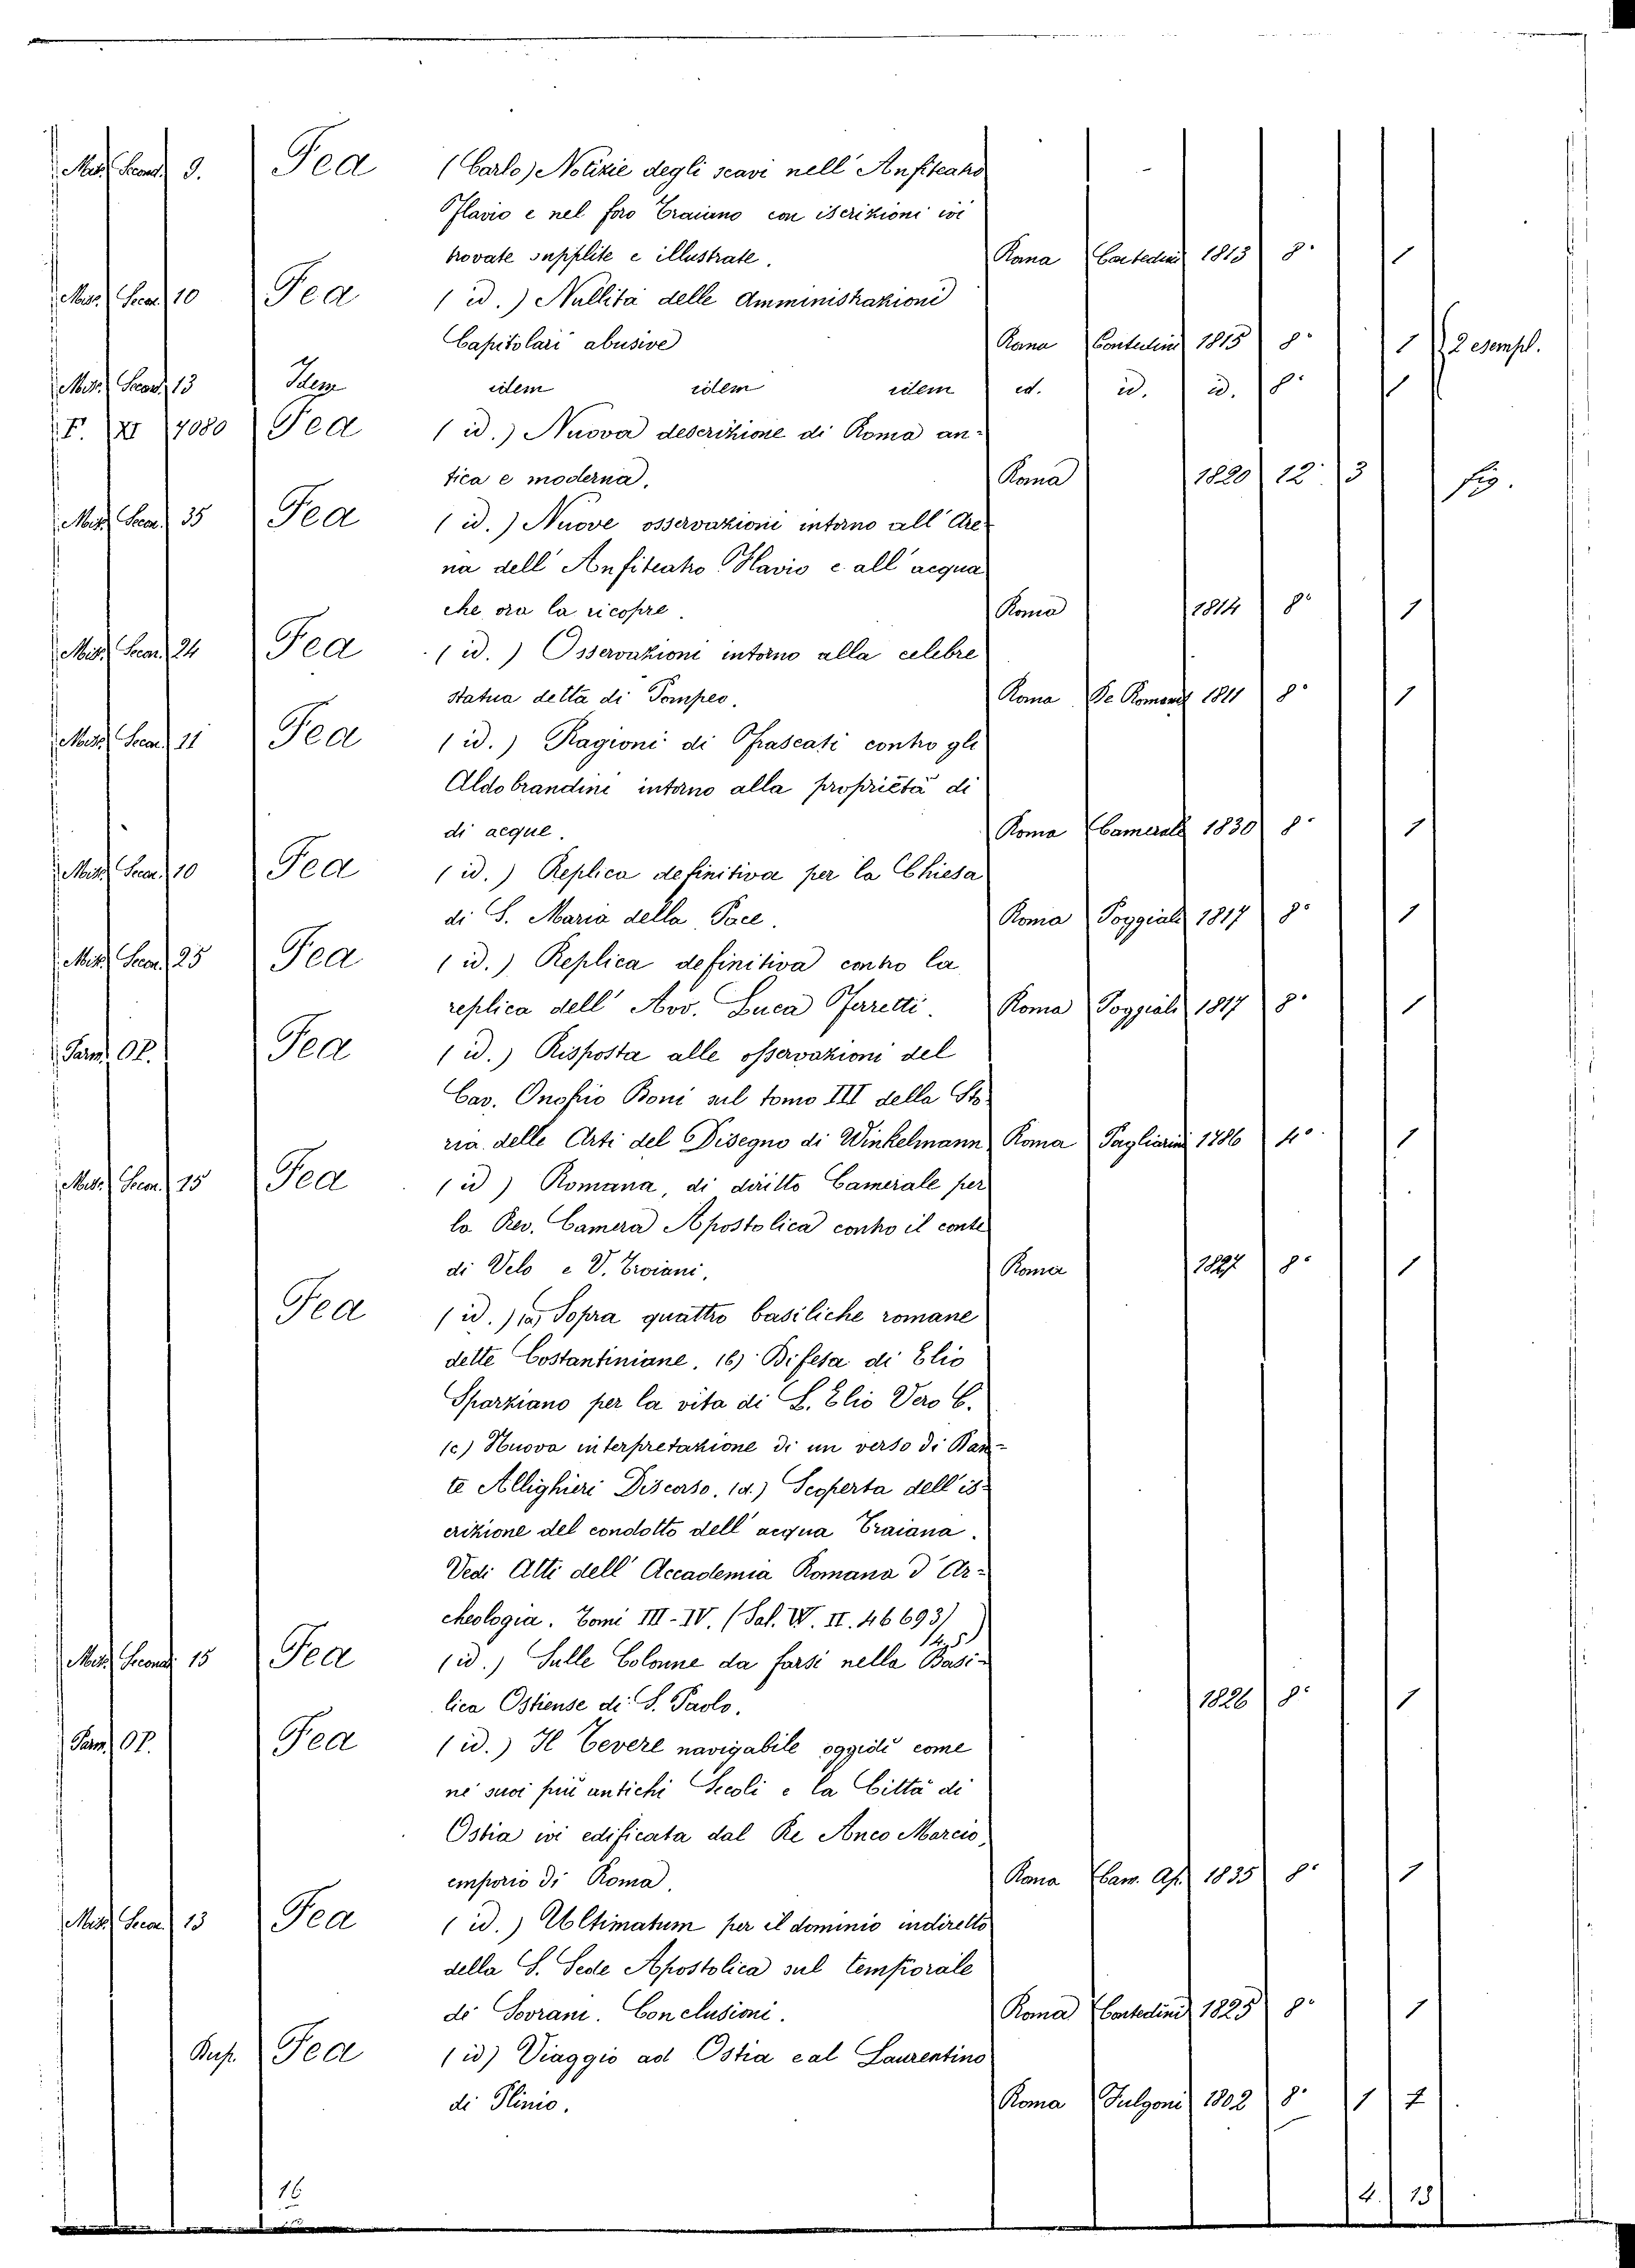 9. Fea (Carlo) Notizie degli scavi nell' Anfiteatro
Flavio e nel foro Traiano con iscrizioni ivi
trovate supplite e illustrate. Roma Contedini 1813 8°
10 Fea (id.) Nullità delle Amministrazioni
Capitolari abusive Roma Contedini 1815 8° 1 2 esempl.
13 Idem idem idem idem id. id. id. 8° 1
F. XI 7080 Fea (id.) Nuova descrizione di Roma an-
tica e moderna. Roma 1820 12° 3 fig.
35 Fea (id.) Nuove osservazioni intorno all' Are-
na dell' Anfiteatro Flavio e all' acqua
che ora la ricopre. Roma 1814 8° 1
24 Fea (id.) Osservazioni intorno alla celebre
statua detta di Pompeo. Roma De Romanis 1811 8° 1
11 Fea (id.) Ragioni di Frascati contro gli
Aldobrandini intorno alla proprietà di
di acque. Roma Camerale 1830 8° 1
10 Fea (id.) Replica definitiva per la Chiesa
di S. Maria della Pace. Roma Poggiali 1817 8° 1
25 Fea (id.) Replica definitiva contro la
replica dell' Avv. Luca Ferretti. Roma Poggiali 1817 8° 1
Fea (id.) Risposta alle osservazioni del
Cav. Onofrio Boni sul tomo III della Sto-
ria delle Arti del Disegno di Winkelmann Roma Pagliarini 1786 4° 1
15 Fea (id) Romana, di diritto Camerale per
la Rev. Camera Apostolica contro il conte
di Velo e V. Troiani. Roma 1827 8° 1
Fea (id.) (a) Sopra quattro basiliche romane
dette Costantiniane. (b) Difesa di Elio
Sparziano per la vita di L. Elio Vero C.
(c) Nuova interpretazione di un verso di Dan-
te Allighieri Discorso. (d.) Scoperta dell' is-
crizione del condotto dell' acqua Traiana.
Vedi Atti dell' Accademia Romana d' Ar-
cheologia. Tomi III-IV. (Sal. W. II. 46693/
14,5)
15 Fea (id.) Sulle Colonne da farsi nella Basi-
lica Ostiense di S. Paolo. 1826 8° 1
Fea (id.) Il Tevere navigabile oggidì come
ne' suoi più antichi Secoli e la Città di
Ostia ivi edificata dal Re Anco Marcio,
emporio di Roma. Roma Cam. Ap. 1835 8° 1
13 Fea (id.) Ultimatum per il dominio indiretto
della S. Sede Apostolica sul temporale
de' Sovrani. Conclusioni. Roma Contedini 1825 8° 1
Fea (id) Viaggio ad Ostia e al Laurentino
di Plinio. Roma Fulgoni 1802 8° 1
16 4. 15